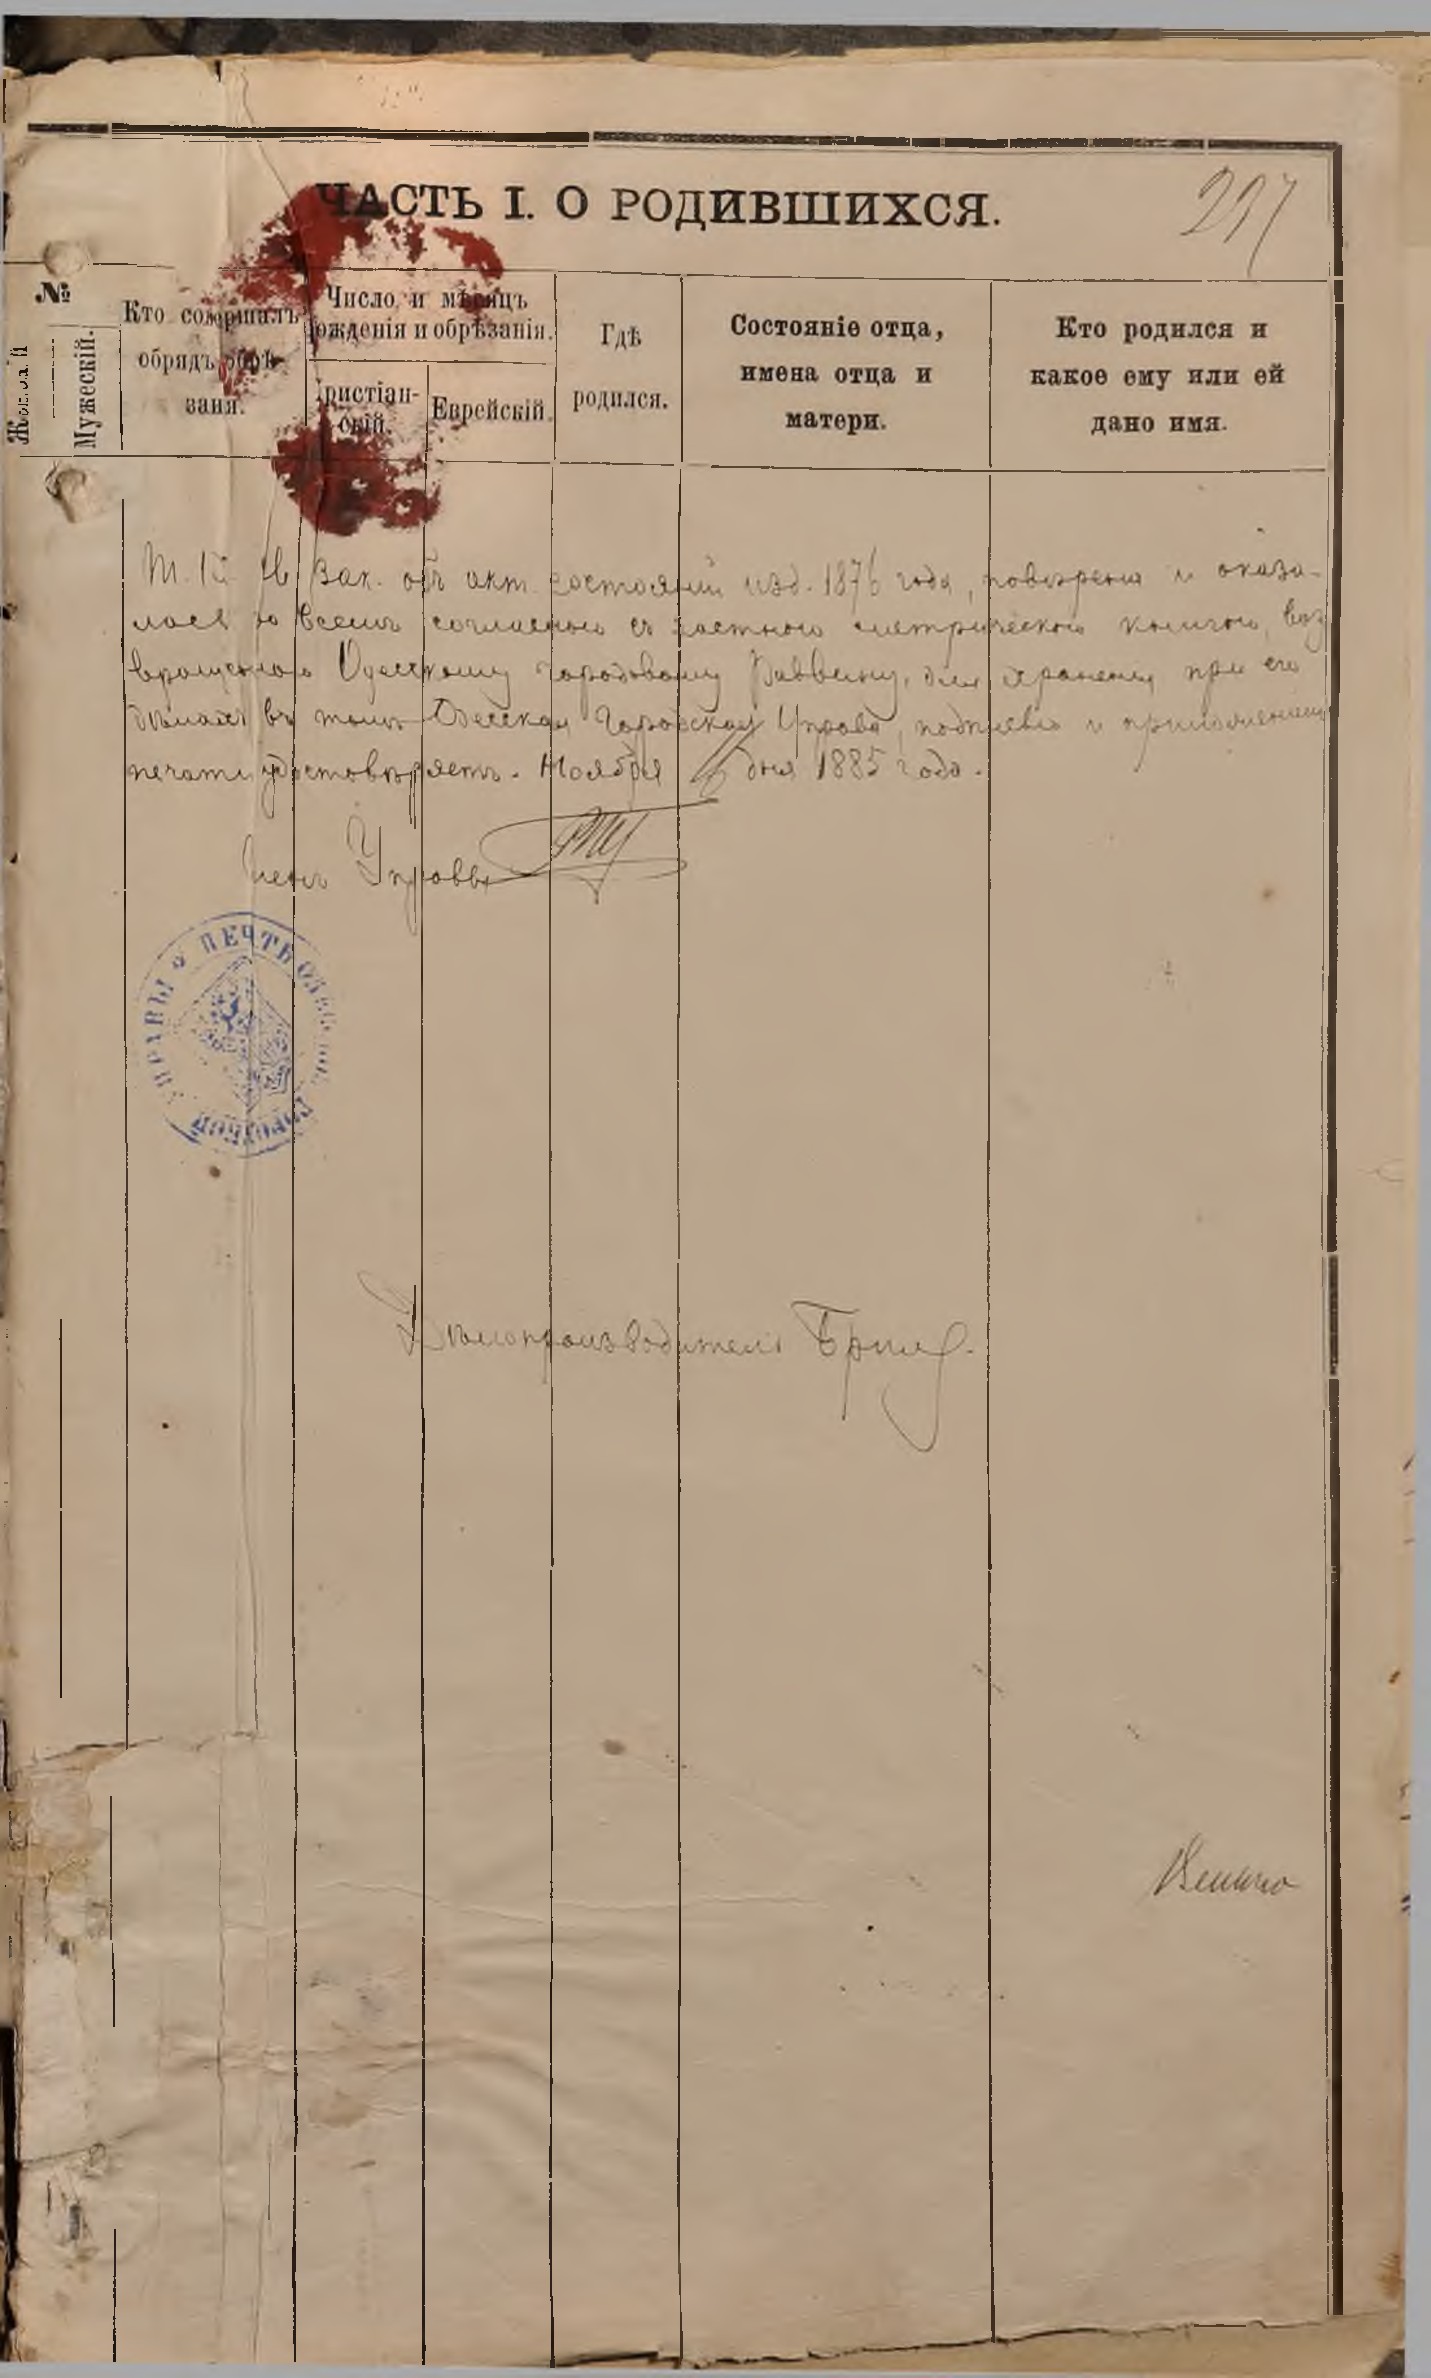 ЧАСТЬ I. О РОДИВШИХСЯ.
237
№
Женскій
Мужескій.
Кто совершалъ
обрядъ обрѣ-
занія.
Число и мѣсяцъ
рожденія и обрѣзанія.
Христіан-
скій.
Еврейскій.
Гдѣ
родился.
Состояніе отца,
имена отца и
матери.
Кто родился и
какое ему или ей
дано имя.
Зак. объ акт. состояній изд. 1876 года, повѣрена и оказа-
лась во всемъ согласною съ частною метрическою книгою, воз
вращенною Одесскому Городовому Раввину, для храненія при его
дѣлахъ въ томъ Одесская Городская Управа, подписью и приложеніемъ
печати удостовѣряетъ. Ноября 16 дня 1885 года.
Членъ Управы
ПЕЧТЬ ОДЕССКОЙ ГОРОДСКОЙ УПРАВЫ
Дѣлопроизводитель